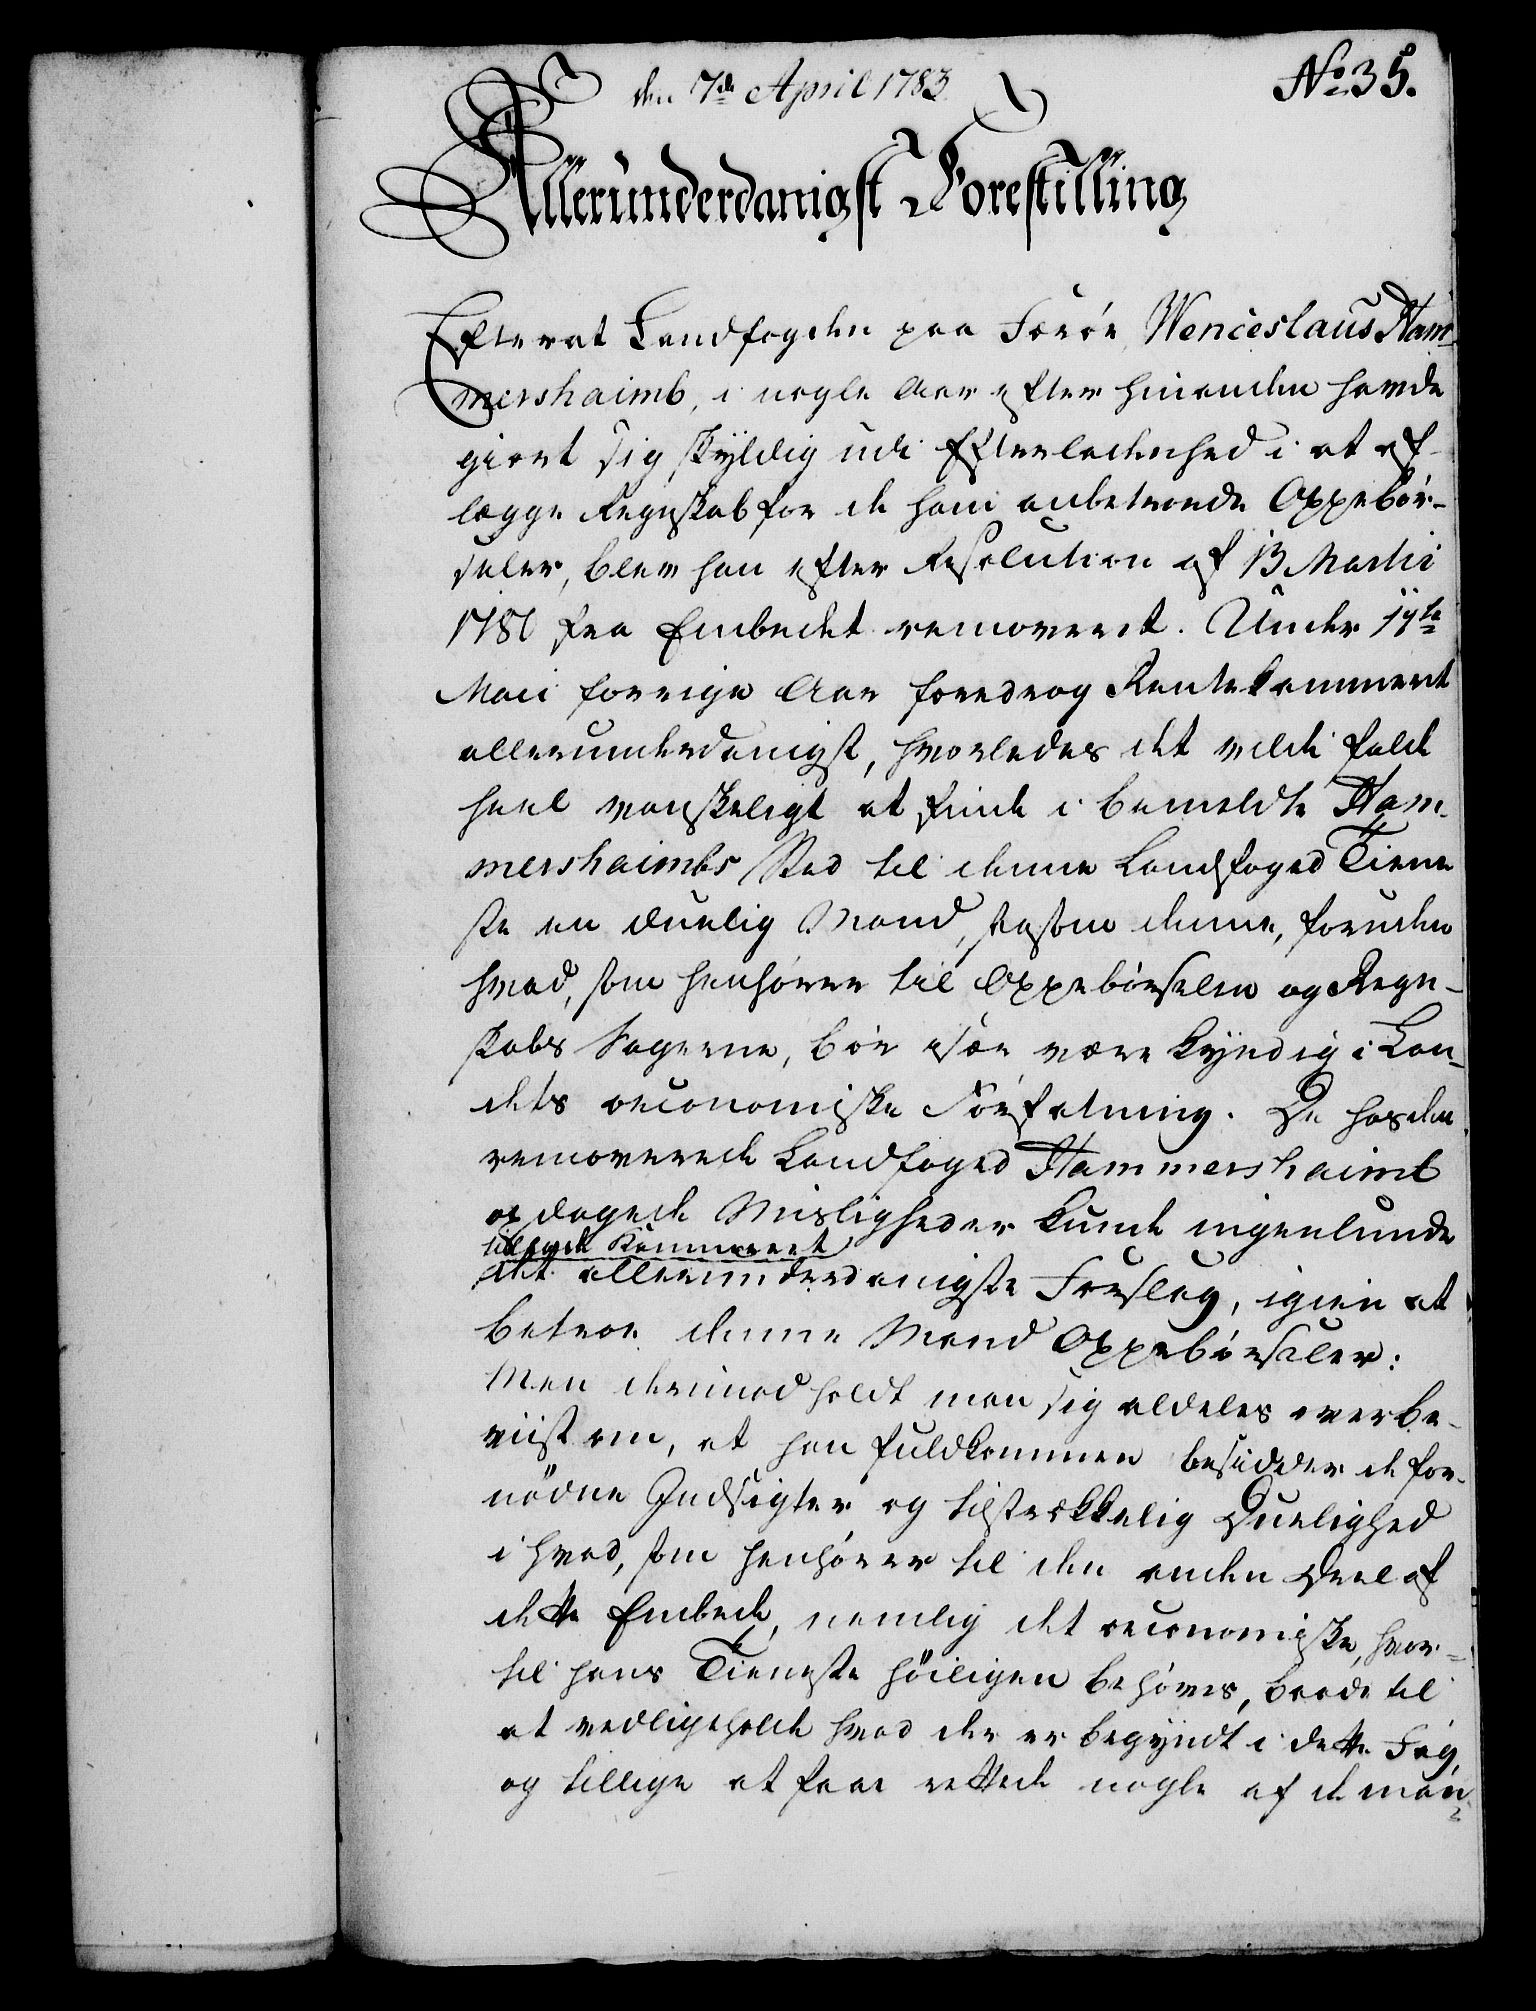 den 7de April 1783.
No 35.
Allerunderdanigst Forestilling
Efterat Landfogden paa Færöe Wenceslaus Ham-
mershaimb, i nogle Aar efter hinanden havde
giort sig skyldig udi Efterladenhed i at af-
lægge Regnskab for de ham anbetroede Oppebör-
seler, blev han efter Resolution af 13 Martii
1780 fra Embedet removeret. Under
Maii forrige Aar foredrog Rentekammeret
allerunderdanigst, hvorledes det vilde falde
heel vanskeligt at finde i bemeldte Ham-
mershaimbs Sted til denne Landfoged Tiene
ste en duelig Mand, saasom denne, foruden
hvad, som henhörer til Oppebörselen og Regn-
skabs Sagerne, bör især være kyndig i Lan-
dets oeconomiske Forfatning. De hos den
removerede Landfoged Hammershaimb
opdagede Misligheder kunde ingenlunde
tillade Kammeret
det allerunderdanigste Forslag, igien at
betroe denne Mand Oppebörseler:
Men derimod holdt man sig aldeles overbe-
viist om, at han fuldkommen besidder de for-
nödne Indsigter og tilstrækkelig Duelighed
i hvad, som henhörer til den anden Deel af
dette Embede, nemlig det oeconomiske, hvor-
til hans Tieneste höiligen behöves, baade til
at vedligeholde hvad der er begyndt i dette Fag,
og tillige at faae rettede nogle af de man-